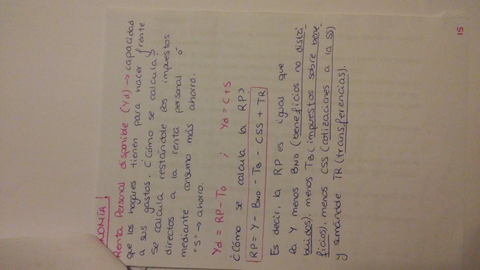 Renta Personal disponible (Yd) → capacidad
que los hogares tienen para hacer frente
a sus gastos. ¿Cómo se calcula?
Se calcula restándole los impuestos
directos a la renta personal ó
mediante consumo más ahorro.
"S" → ahorro.
Yd = RP - TD ; Yd = C + S
¿Cómo se calcula la RP?
RP = Y - BND - TB - CSS + TR
Es decir, la RP es igual que
la Y menos BND (beneficios no distri-
buidos), menos TB (impuestos sobre bene-
ficios), menos CSS (cotizaciones a la SS)
y sumándole TR (transferencias).
15